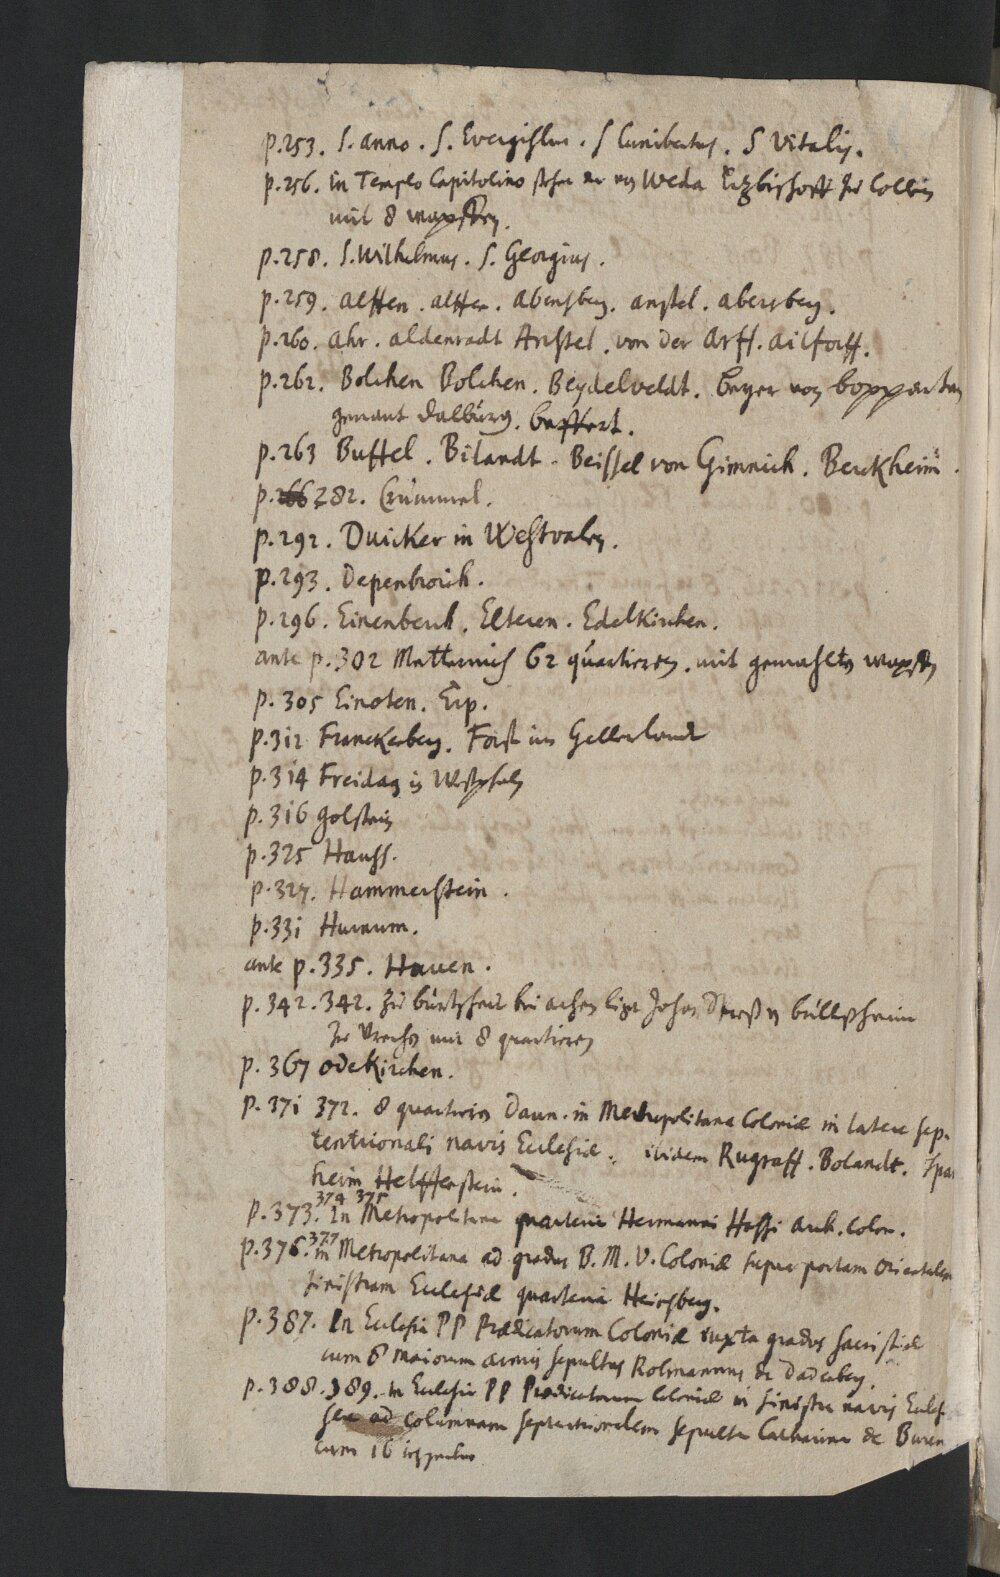 p. 253. S. anno. S. Evergislus. S Cunibertus. S Vitalis.
p. 256. in Templo Capitolino von Weda Ertzbischoff zu Collen
mit 8 wapffen.
p. 258. S. Wilhelmus. S. Georgius.
p. 259. alffen. alffter. Abensberg. anstel. abersberg.
p. 260. Ahr. aldenradt Anstel. von der Arff. ailforff.
p. 262. Bolchen Bolchen. Beydelveldt. beyer von bopparten
genant dalbürg. beffert.
p. 263 Buffel. Bilandt. Beissel von Gimnich. Berckheim.
p. 282. Crümmel.
p. 292. Duicker in Westvalen.
p. 293. Depenbroich.
p. 296. Einenberch. Elteren. Edelkirchen.
ante p. 302 Metternich 62 quartieren. mit gemahlten wapffen
p. 305 Einoten. Erp.
p. 312 Franckenberg. Forst im Gellerlandt
p. 314 Freidag in Westphalen
p. 316 golstein
p. 325 Hauss.
p. 327. Hammerstein.
p. 331 Hurnum.
ante p. 335. Hauen.
p. 342. 342. zu bürtscheit bei achen ligt Johan von büllesheim
zu mit 8 quartieren
p. 367 odekirchen.
p. 371 372. 8 quartiren Daun. in Metropolitana Coloniæ in latere sep-
tentrionali navis Ecclesiæ. ibidem Rugraff. Bolandt. Span
heim Helffenstein.
p. 373. 374 375 In Metropolitana quarteria Hermanni Hassi Arch. Colon.
p. 376. 377 in Metropolitana ad gradus B. M. V. Coloniæ supra portam Orientalem
sinistram Ecclesiæ quarteria Heinsberg.
p. 387. In Ecclesia PP Prædicatorum Coloniæ iuxta gradus sacristiæ
cum 8 maiorum armis sepultus Rolmannus de Dadenberg.
p. 388. 389. in Ecclesia PP Prædicatorum Coloniæ in sinistra navis Eccles
seu ad columnam septentrionalem sepulta Catharina de Buren
cum 16